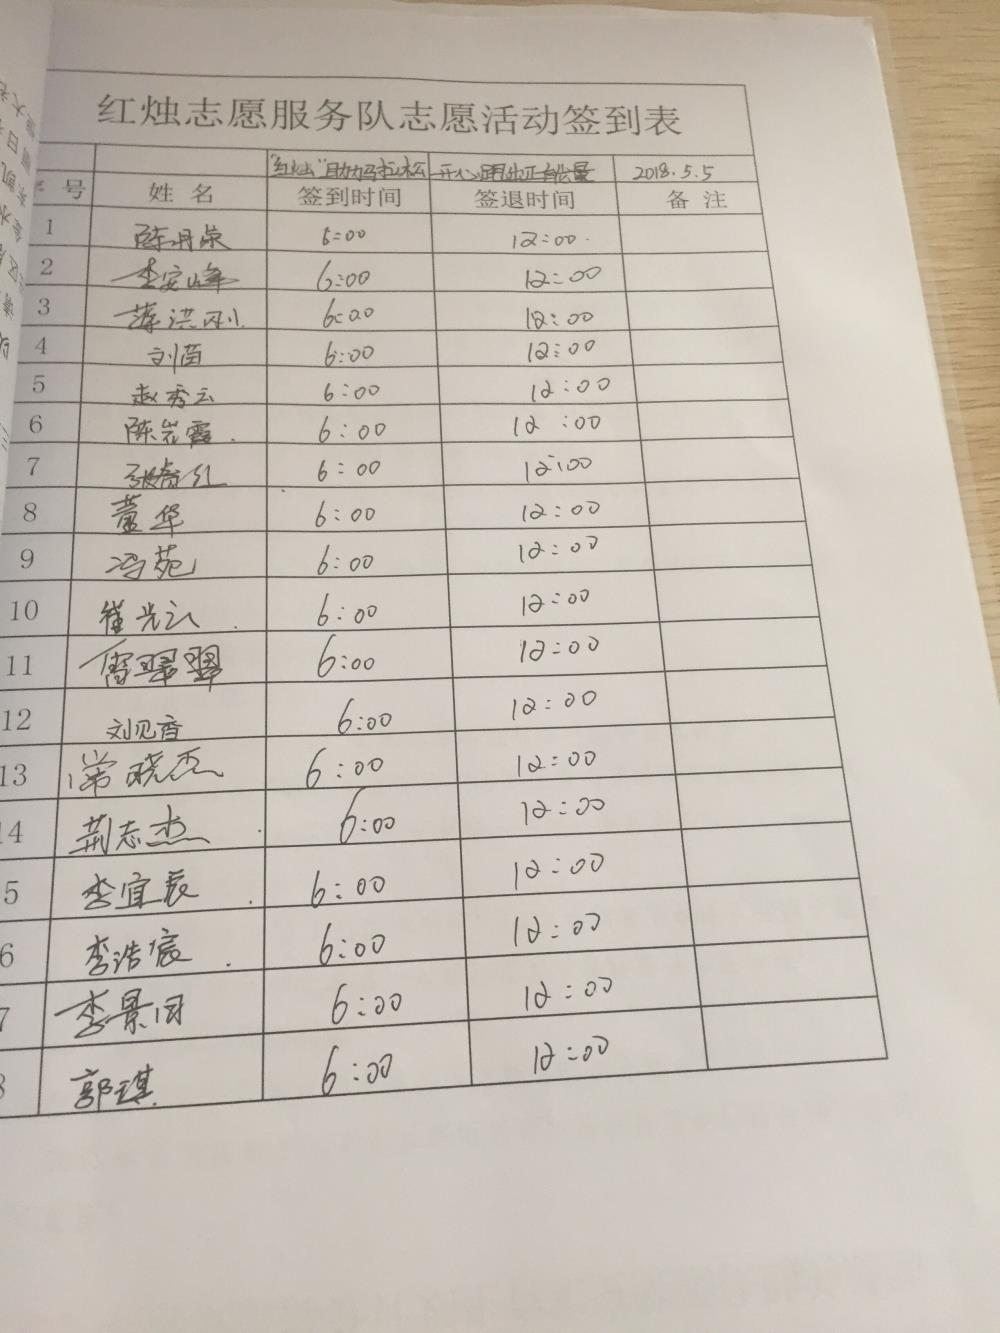 红烛志愿服务队志愿活动签到表
"红烛"助力马拉松 开心跑出正能量 2018.5.5
序号 姓名 签到时间 签退时间 备注
1 陈丹荣 6:00 12:00
2 李安峰 6:00 12:00
3 薄洪刚 6:00 12:00
4 刘苗 6:00 12:00
5 赵秀云 6:00 12:00
6 陈岩霞 6:00 12:00
7 张 红 6:00 12:00
8 董华 6:00 12:00
9 冯苑 6:00 12:00
10 崔光 6:00 12:00
11 雷翠翠 6:00 12:00
12 刘见香 6:00 12:00
13 常晓杰 6:00 12:00
14 荆志杰 6:00 12:00
5 李宜辰 6:00 12:00
6 李浩宸 6:00 12:00
7 李景同 6:00 12:00
8 郭琪 6:00 12:00